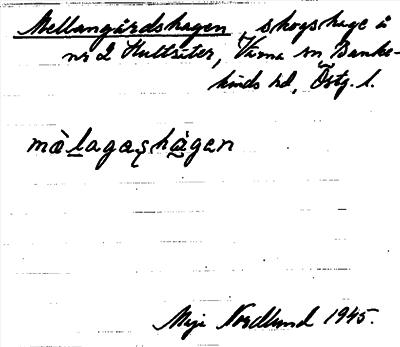 Mellangårdshagen, skogshage å
nr 2 Hultsäter, Värna sn Banke-
kinds hd, Östg. l.
màlagaşhàgen
Maji Nordlund 1945.